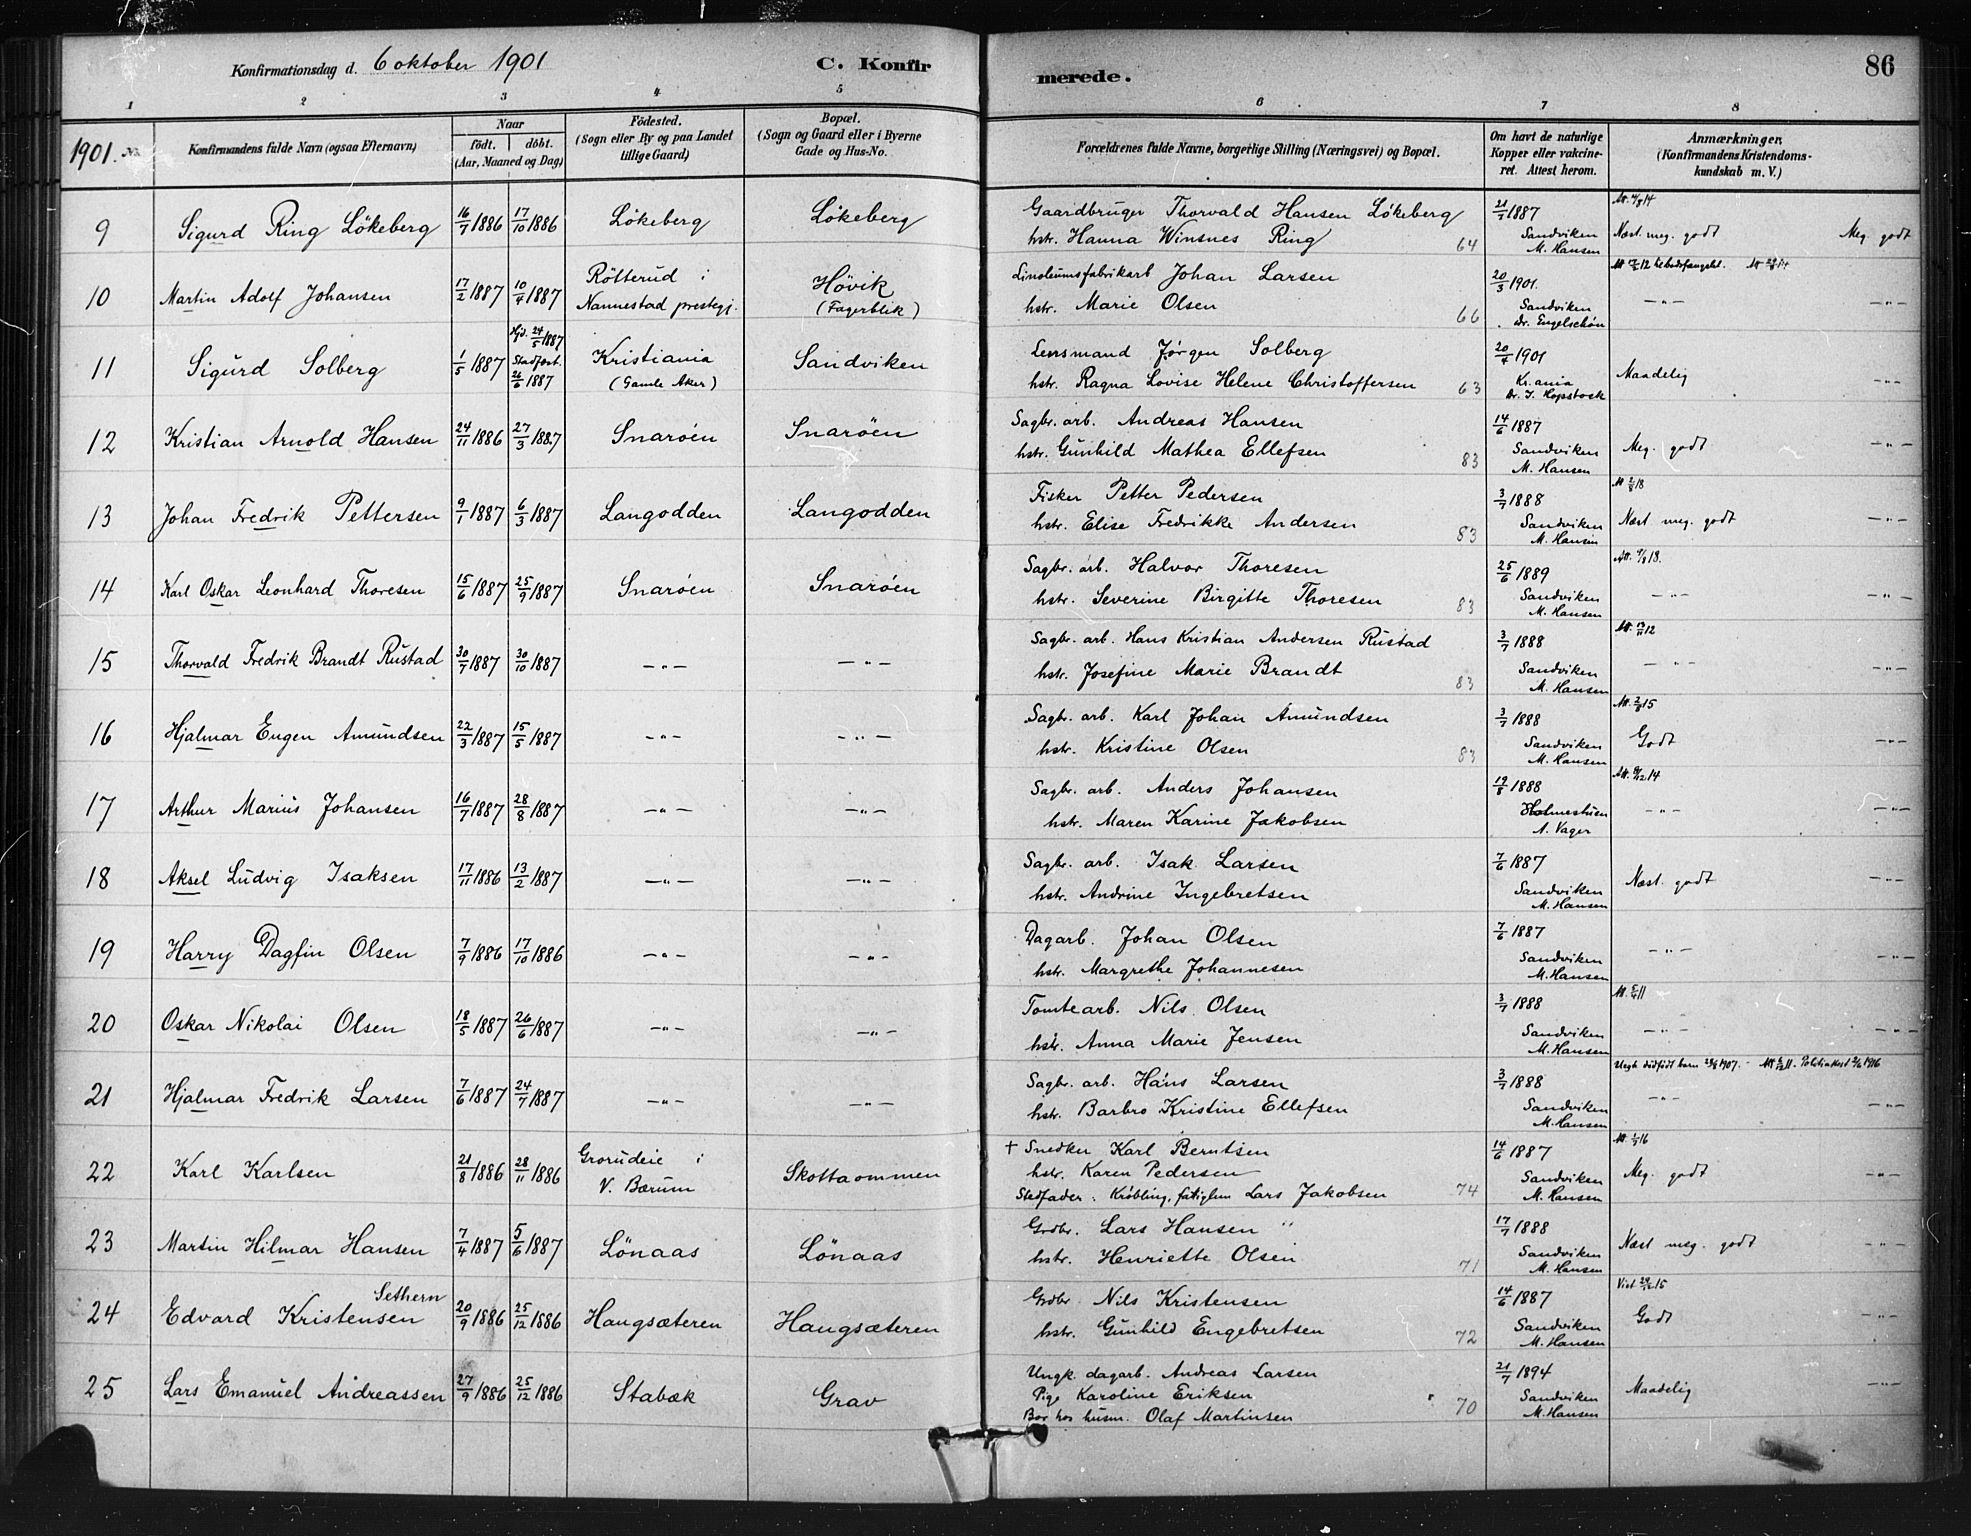 Konfirmationsdag d. 6 oktober 1901
C. Konfir
merede.
86
1 2 3 4 5 6 7 8
1901. No.
Konfirmandens fulde Navn (ogsaa Efternavn)
Naar
født. døbt.
(Aar, Maaned og Dag)
Födested.
(Sogn eller By og paa Landet
tillige Gaard)
Bopæl.
(Sogn og Gaard eller i Byerne
Gade og Hus-No.
Forældrenes fulde Navne, borgerlige Stilling (Næringsvei) og Bopæl.
Om havt de naturlige
Kopper eller vakcine-
ret. Attest herom.
Anmærkninger.
(Konfirmandens Kristendoms-
kundskab m. V.)
9 Sigurd Ring Lökeberg 16/7 1886 17/10 1886 Lökeberg Lökeberg
Gaardbruger Thorvald Hansen Lökeberg
hstr. Hanna Winsnes Ring 64
21/7 1887
Sandviken
M. Hansen
Næst. meg. godt Meg. godt
10 Martin Adolf Johansen 17/2 1887 10/4 1887
Rötterud i
Nannestad prestegj.
Hövik
(Fagerblik)
Linoleumsfabrikarb Johan Larsen
hstr. Marie Olsen 66
20/3 1901.
Sandviken
Dr. Engelschön
—"— —"—
11 Sigurd Solberg 1/5 1887
Hjd. 24/5 1887
Stadfæst.
26/6 1887
Kristiania
(Gamle Aker)
Sandviken
Lensmand Jørgen Solberg
hstr. Ragna Lovise Helene Christoffersen 63
20/4 1901
Kr.ania
Dr. I. Kopstock
Maadelig —"—
12 Kristian Arnold Hansen 24/11 1886 27/3 1887 Snaröen Snaröen
Sagbr. arb. Andreas Hansen
hstr. Gunhild Mathea Ellefsen 83
14/6 1887
Sandviken
M. Hansen
Meg. godt —"—
13 Johan Fredrik Pettersen 9/1 1887 6/3 1887 Langodden Langodden
Fisker Petter Pedersen
hstr. Elise Fredrikke Andersen 83
3/7 1888
Sandviken
M. Hansen
Næst meg. godt —"—
14 Karl Oskar Leonhard Thoresen 15/6 1887 25/9 1887 Snaröen Snaröen
Sagbr. arb. Halvor Thoresen
hstr. Severine Birgitte Thoresen 83
25/6 1889
Sandviken
M. Hansen
—"— —"—
15 Thorvald Fredrik Brandt Rustad 30/7 1887 30/10 1887 —"— —"—
Sagbr. arb. Hans Kristian Andersen Rustad
hstr. Josefine Marie Brandt 83
3/7 1888
Sandviken
M. Hansen
—"— —"—
16 Hjalmar Eugen Amundsen 22/3 1887 15/5 1887 —"— —"—
Sagbr. arb. Karl Johan Amundsen
hstr. Kristine Olsen 83
3/7 1888
Sandviken
M. Hansen
Godt —"—
17 Arthur Marius Johansen 16/7 1887 28/8 1887 —"— —"—
Sagbr. arb. Anders Johansen
hstr. Maren Karine Jakobsen
19/8 1888
A. Vager
—"— —"—
18 Aksel Ludvig Isaksen 17/11 1886 13/2 1887 —"— —"—
Sagbr. arb. Isak Larsen
hstr. Andrine Ingebretsen
7/6 1887
Sandviken
M. Hansen
Næst. godt —"—
19 Harry Dagfin Olsen 7/9 1886 17/10 1886 —"— —"—
Dagarb. Johan Olsen
hstr. Margrethe Johannesen
7/6 1887
Sandviken
M. Hansen
—"— —"—
20 Oskar Nikolai Olsen 18/5 1887 26/6 1887 —"— —"—
Tomtearb. Nils Olsen
hstr. Anna Marie Jensen
3/7 1888
Sandviken
M. Hansen
—"— —"—
21 Hjalmar Fredrik Larsen 7/6 1887 24/7 1887 —"— —"—
Sagbr. arb. Hans Larsen
hstr. Barbro Kristine Ellefsen
3/7 1888
Sandviken
M. Hansen
—"— —"—
22 Karl Karlsen 21/8 1886 28/11 1886
Grorudeie i
V. Bærum
Skottaommen
+ Snedker Karl Berntsen
hstr. Karen Pedersen
Stedfader: Krøbling, fatiglem Lars Jakobsen 74
14/6 1887
Sandviken
M. Hansen
Meg. godt —"—
23 Martin Hilmar Hansen 7/4 1887 5/6 1887 Lönaas Lönaas
Grdbr. Lars Hansen "
hstr. Henriette Olsen 71
17/7 1888
Sandviken
M. Hansen
Næst meg. godt —"—
Sethern
24 Edvard Kristensen 20/9 1886 25/12 1886 Haugsæteren Haugsæteren
Grdbr Nils Kristensen
hstr. Gunhild Engebretsen 72
14/6 1887
Sandviken
M. Hansen
Godt —"—
25 Lars Emanuel Andreassen 27/9 1886 25/12 1886 Stabæk Grav
Ungk. dagarb. Andreas Larsen
Pige Karoline Eriksen
Bor hos husm. Olaf Martinsen 70
21/7 1894
Sandviken
M. Hansen
Maadelig —"—